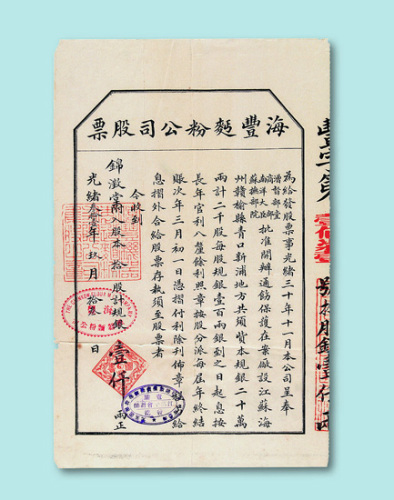 海豐麪粉公司股票
為給發股票事光緒三十年十一月本公司呈奉
商部南洋大臣
漕督部堂
蘇撫部院
批准開辦通飭保護在案廠設江蘇海
州贛榆縣青口新浦地方共須資本規銀二十萬
兩計二千股每股規銀壹百兩銀到之日起息按
長年官利八釐餘利照章按股分派每屆年終結
賬次年三月初一日憑摺付利除刊佈章
給
息摺外合給股票存執須至股票者
今收到
錦澂堂附入股本拾股計規銀壹仟兩正
光緒叁拾壹年玖月拾
日